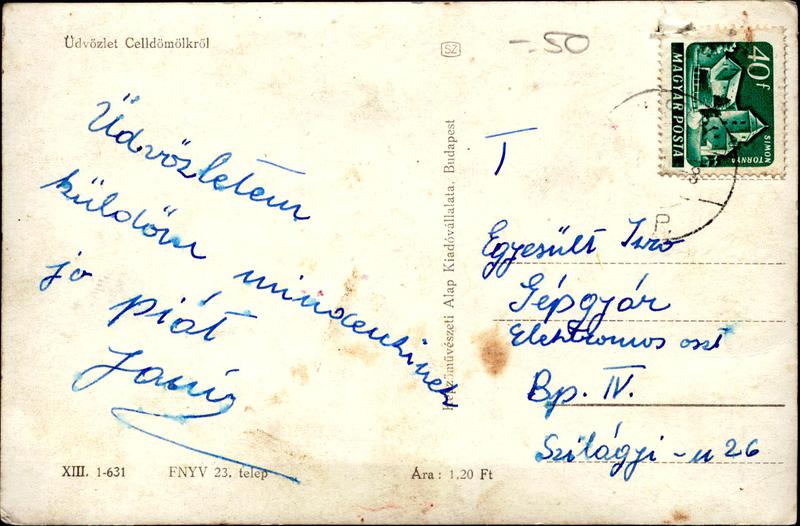 Üdvözlet Celldömölkről
SZ
-.50
40f
MAGYAR POSTA
SIMON
TORNYA
Üdvözletem
küldöm mindenkinek
jo piát
Janó
Képzőművészeti Alap Kiadóvállalata, Budapest
T
Egyesült Izzo
Gépgyár
Elektromos oszt
Bp. IV.
Szilágyi - u 26
XIII. 1-631
FNYV 23. telep
Ára: 1,20 Ft